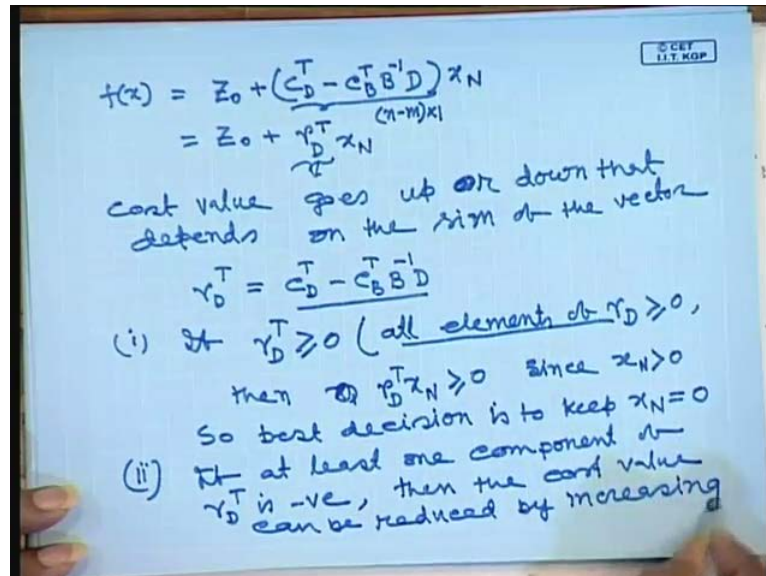 © CET
I.I.T. KGP
f(x) = Z₀ + (C_D^T - C_B^T B^{-1} D) x_N
(n-m)×1
= Z₀ + r_D^T x_N
cost value goes up or down that
depends on the sign of the vector
r_D^T = C_D^T - C_B^T B^{-1} D
(i) If r_D^T ≥ 0 (all elements of r_D ≥ 0,
then r_D^T x_N ≥ 0 since x_N > 0
So best decision is to keep x_N = 0
(ii) If at least one component of
r_D^T is -ve, then the cost value
can be reduced by increasing